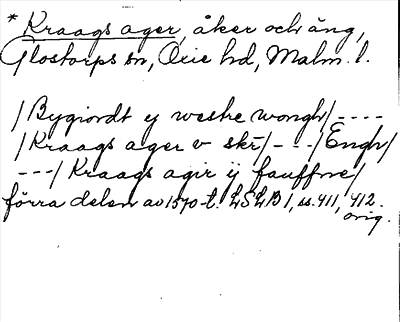 * Kraags ager, åker och äng,
Glostorps sn, Oxie hd, Malm. l.
/Bygiordt ij westre wongh/ ----
/Kraags ager v skr/ - --/Engh/
---/ Kraags agir ij fauffne/
förra delen av 1570-t. LSLB 1, ss. 411, 412.
orig.